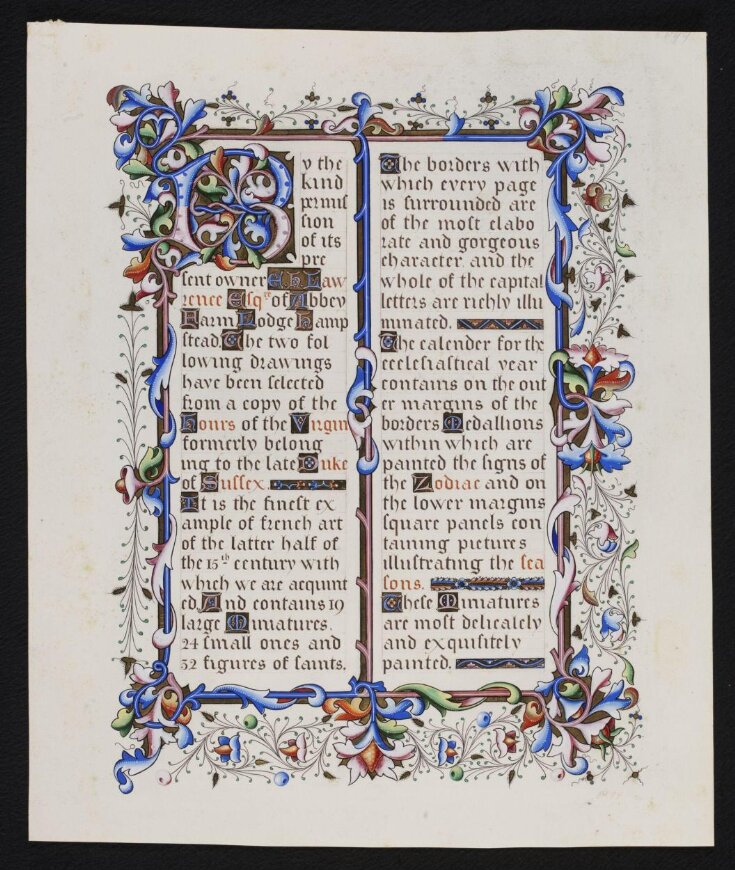 By the
kind
permiſ
ſion
of its
pre
ſent owner E. h. Law
rence Eſqre of Abbey
Farm Lodge Hamp
ſtead. The two fol
lowing drawings
have been ſelected
from a copy of the
Hours of the Virgin
formerly belong
ing to the late Duke
of Suſſex.
It is the fineſt ex
ample of french art
of the latter half of
the 15th century with
which we are acquint
ed. And contains 19
large Miniatures.
24 ſmall ones and
32 figures of ſaints.
The borders with
which every page
is ſurrounded are
of the moſt elabo
rate and gorgeous
character and the
whole of the capital
letters are richly illu
minated.
The calender for the
eccleſiaſtical year
contains on the out
er margins of the
borders Medallions
within which are
painted the ſigns of
the Zodiac and on
the lower margins
ſquare panels con
taining pictures
illuſtrating the ſea
ſons.
Theſe Miniatures
are moſt delicately
and exquiſitely
painted.